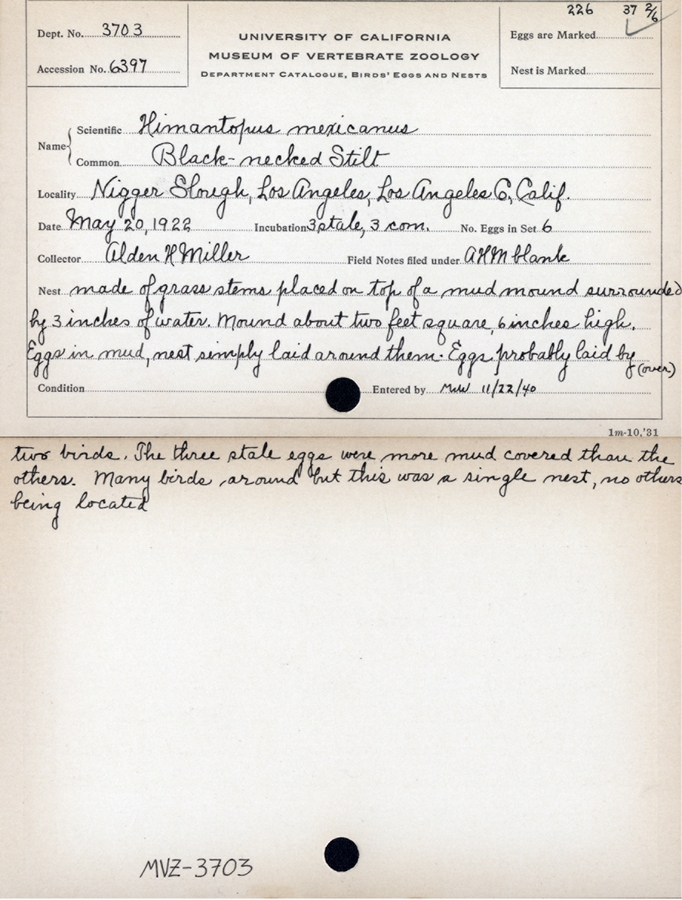 226 37 2/6
Dept. No. 3703
Accession No. 6397
UNIVERSITY OF CALIFORNIA
MUSEUM OF VERTEBRATE ZOOLOGY
DEPARTMENT CATALOGUE, BIRDS' EGGS AND NESTS
Eggs are Marked
Nest is Marked
Name Scientific Himantopus mexicanus
Common Black-necked Stilt
Locality Nigger Slough, Los Angeles, Los Angeles Co, Calif.
Date May 20, 1922 Incubation 3 stale, 3 com. No. Eggs in Set 6
Collector Alden H Miller Field Notes filed under AHM blank
Nest made of grass stems placed on top of a mud mound surrounded
by 3 inches of water. Mound about two feet square, 6 inches high.
Eggs in mud, nest simply laid around them. Eggs probably laid by
(over)
Condition Entered by MW 11/22/40
1m-10,'31
two birds. The three stale eggs were more mud covered than the
others. Many birds around but this was a single nest, no others
being located
MVZ-3703